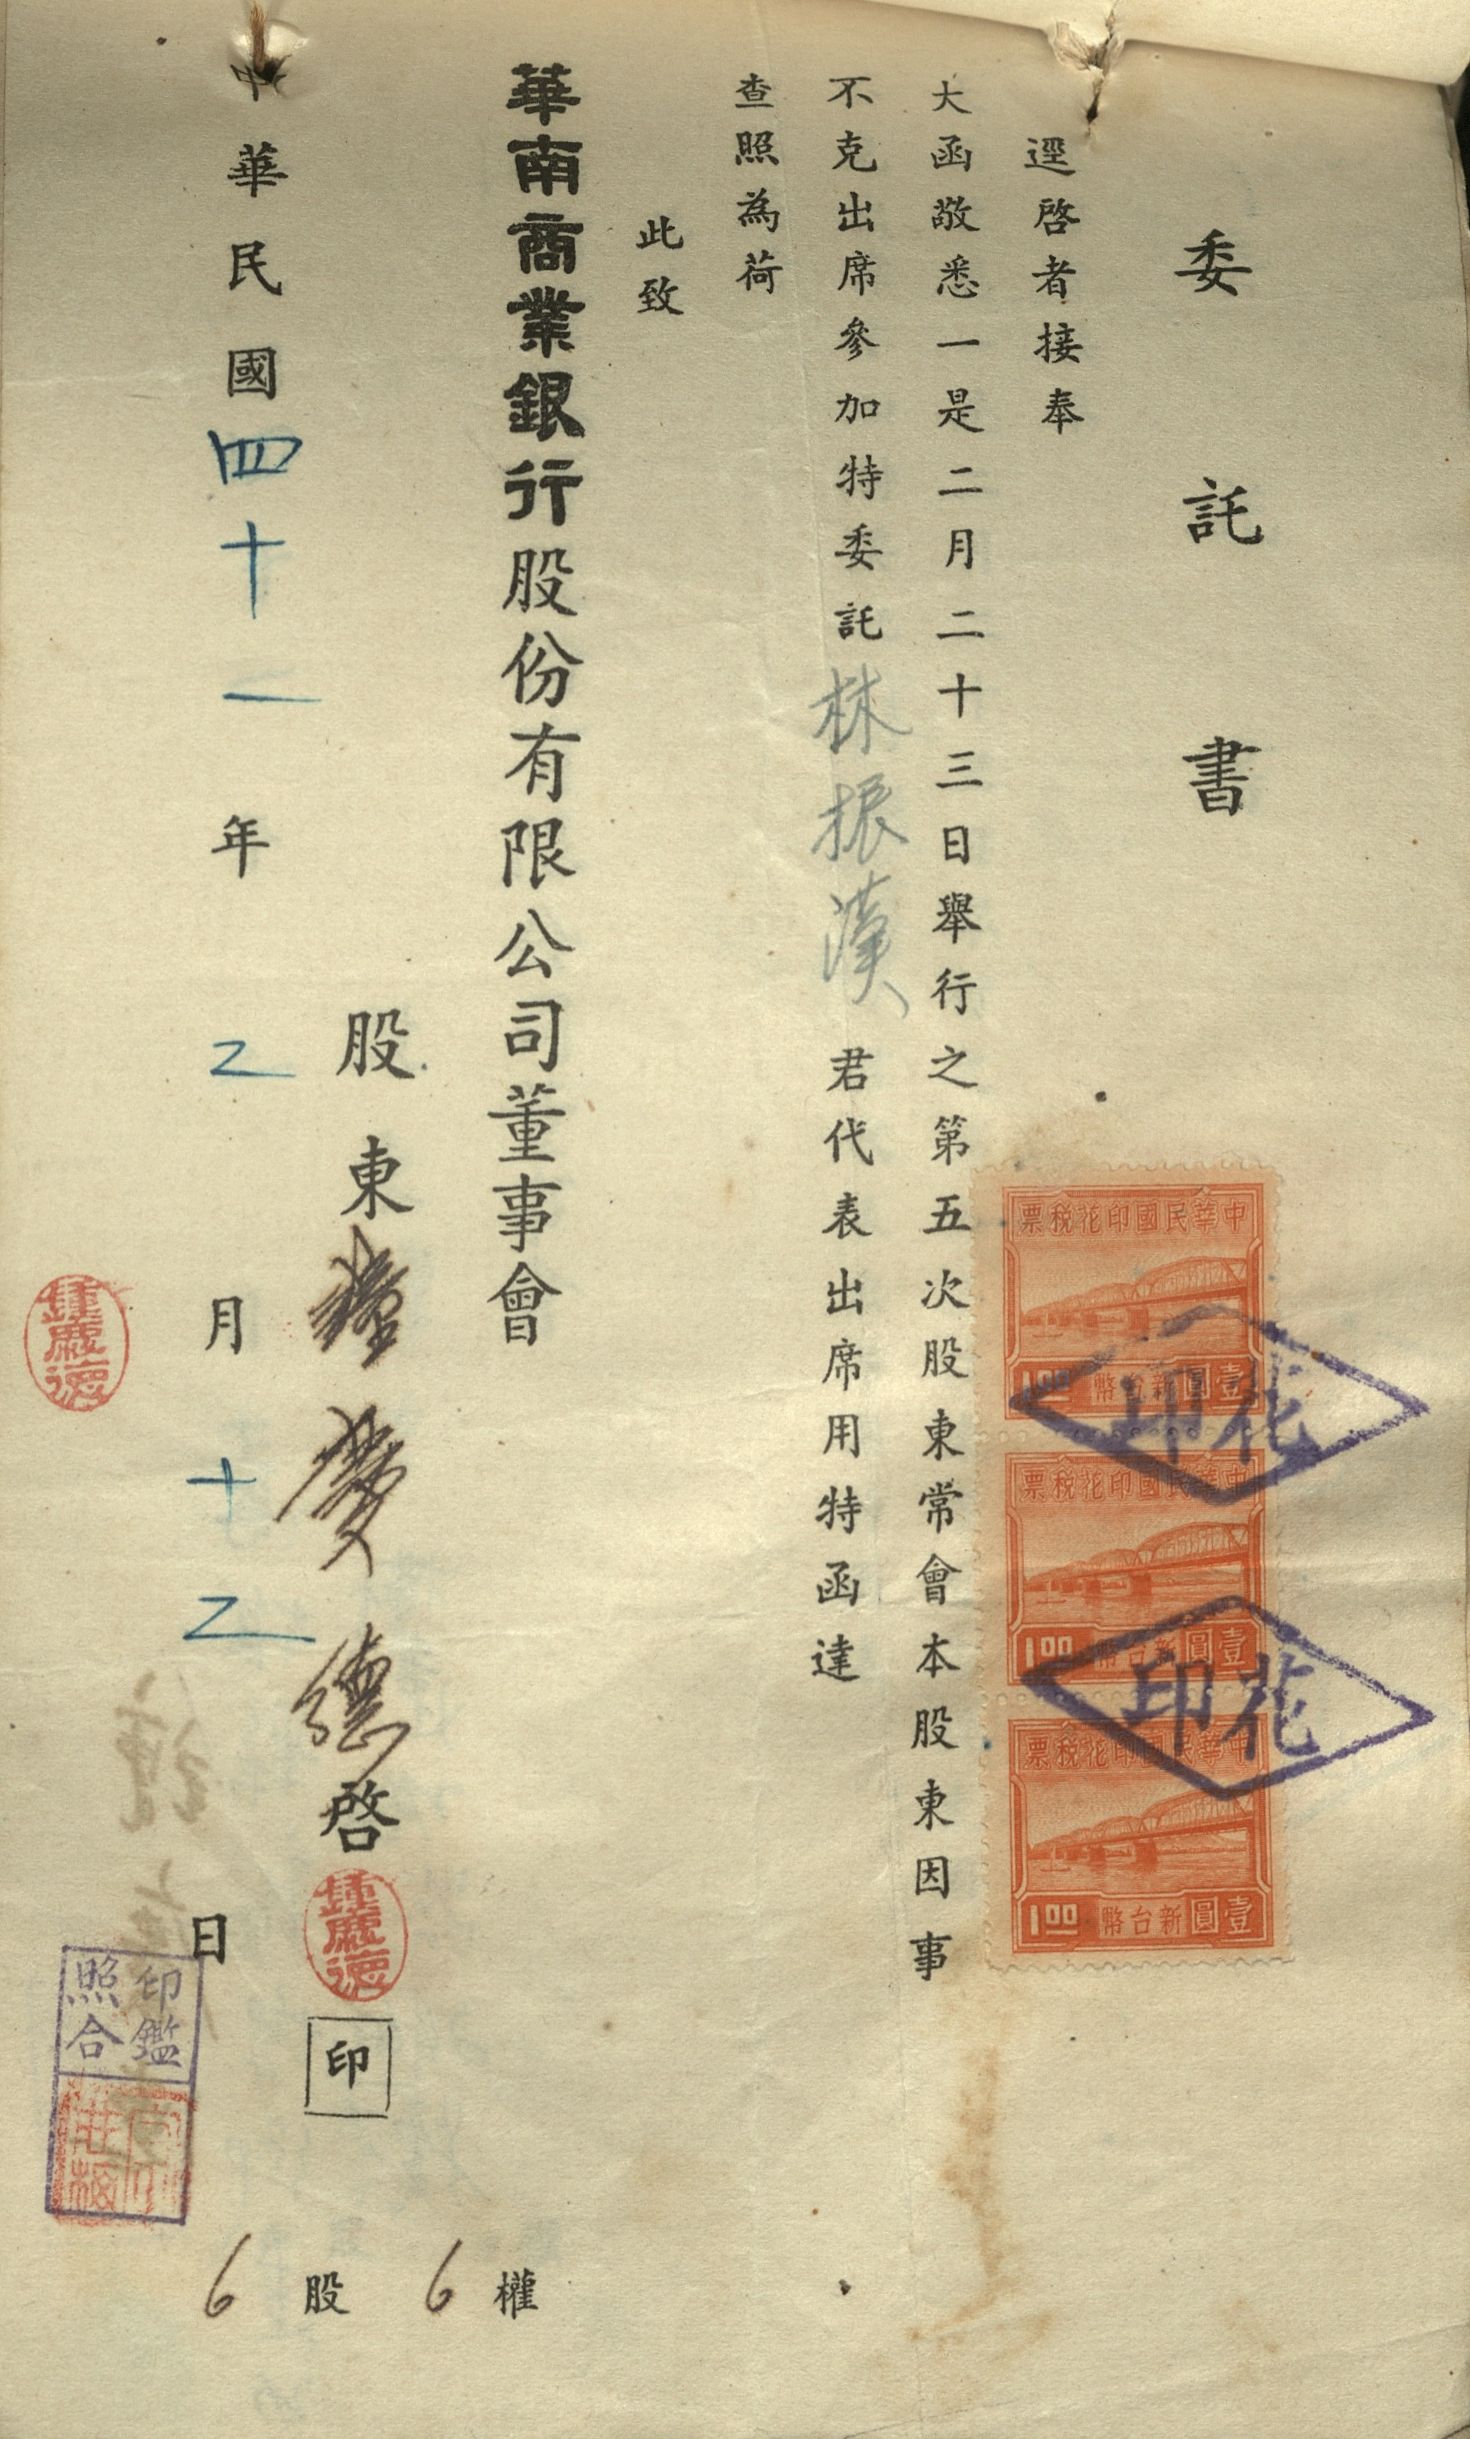 委託書
逕啓者接奉
大函敬悉一是二月二十三日舉行之第五次股東常會本股東因事
不克出席參加特委託林振漢君代表出席用特函達
查照為荷
此致
華南商業銀行股份有限公司董事會
股東鍾慶德啓
鍾慶德
印
中華民國四十一年2月十2日
鍾慶德
印鑑
照合
6股 6權
中華民國印花稅票
壹圓新台幣 1.00
中華民國印花稅票
壹圓新台幣 1.00
中華民國印花稅票
壹圓新台幣 1.00
花印
花印